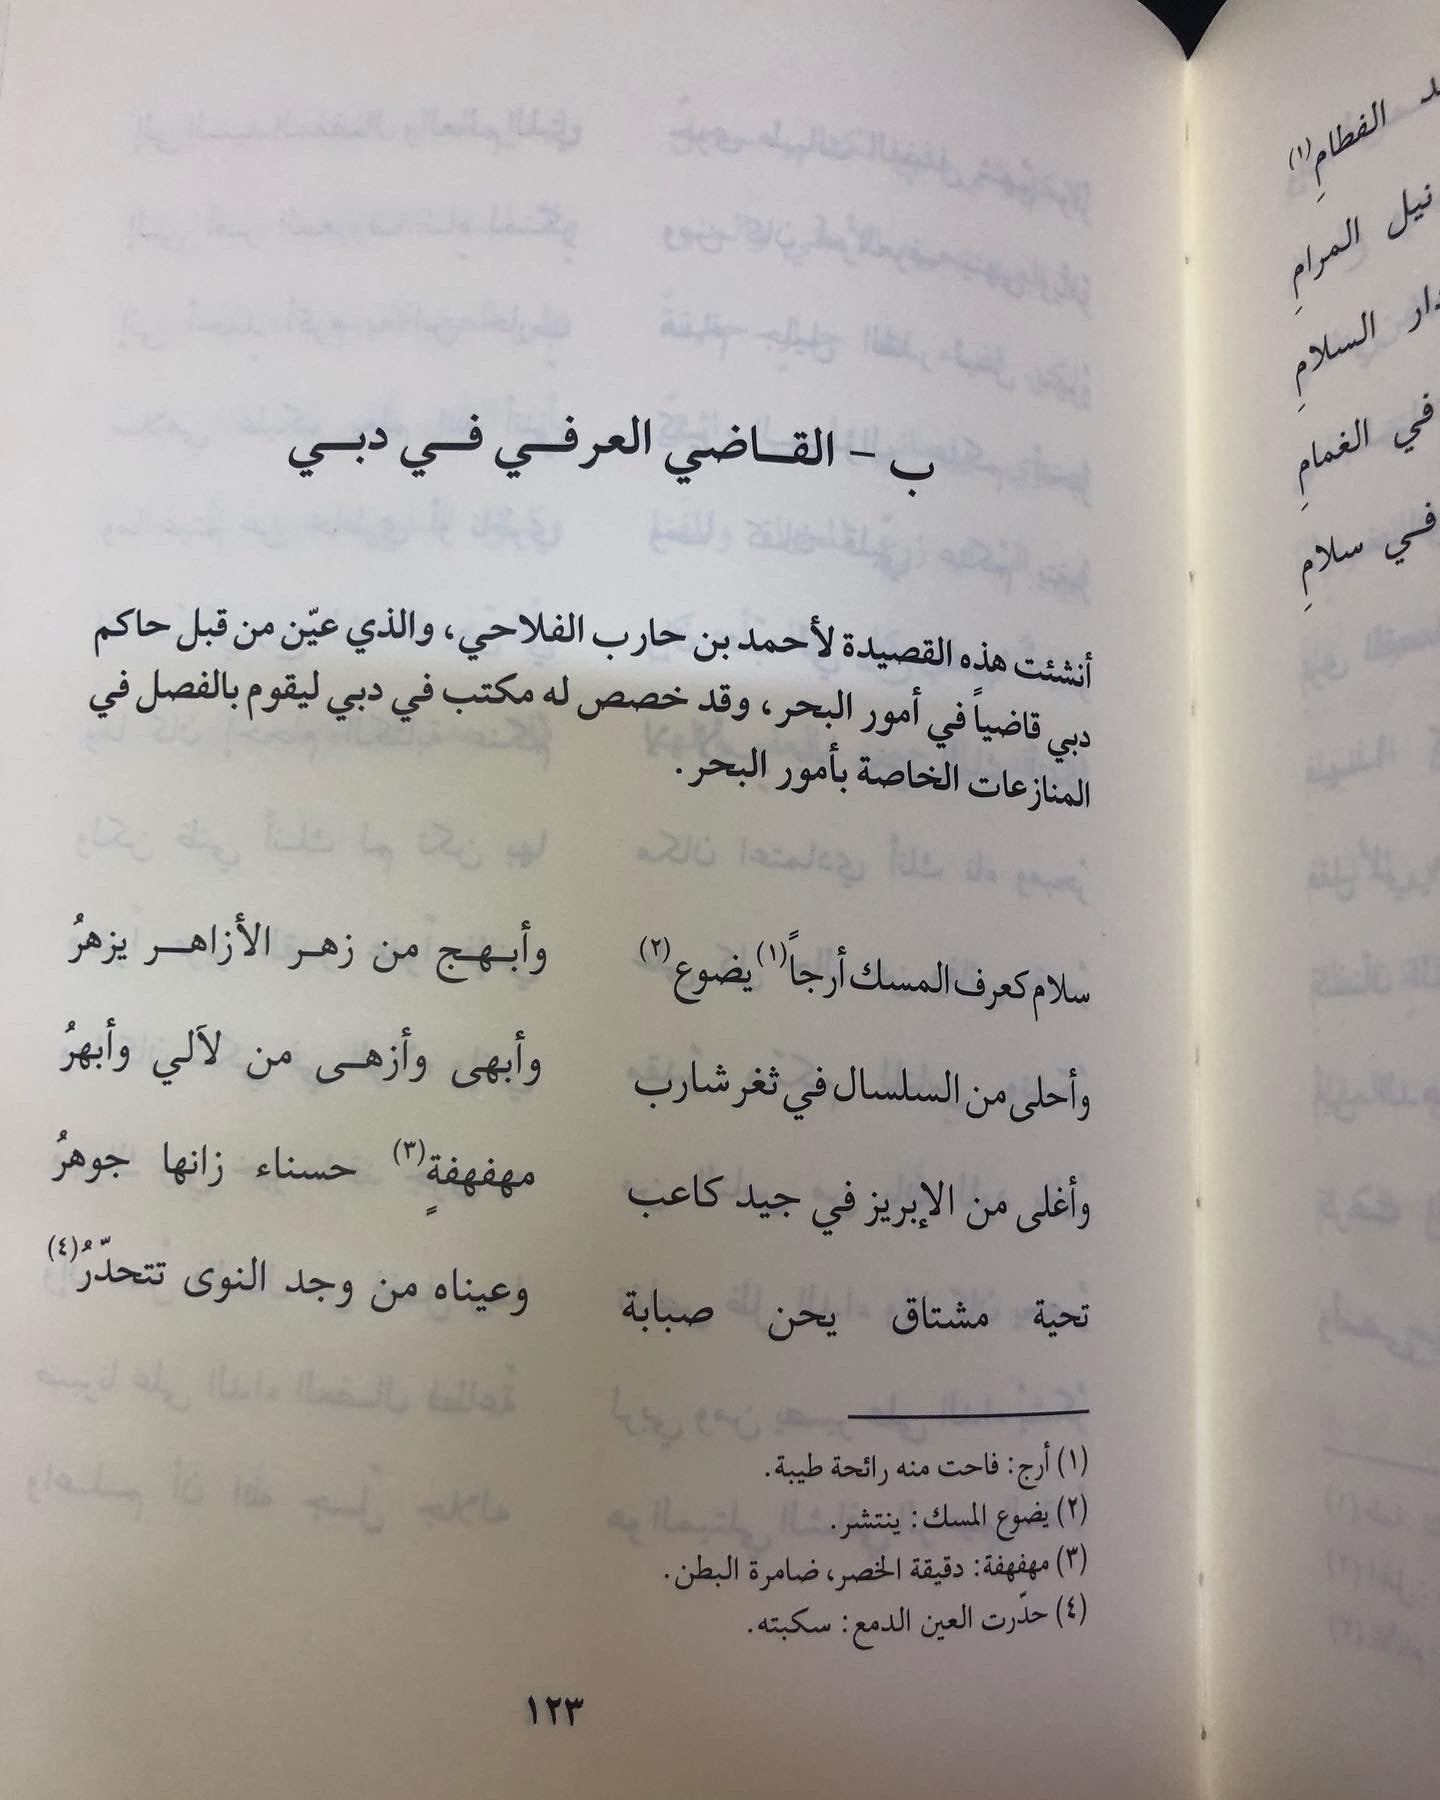 ب - القاضي العرفي في دبي
أنشئت هذه القصيدة لأحمد بن حارب الفلاحي، والذي عيّن من قبل حاكم
دبي قاضياً في أمور البحر، وقد خصص له مكتب في دبي ليقوم بالفصل في
المنازعات الخاصة بأمور البحر.
سلام كعرف المسك أرجاً(١) يضوع(٢) وأبهج من زهر الأزاهر يزهرُ
وأحلى من السلسال في ثغر شارب وأبهى وأزهى من لآلي وأبهرُ
وأغلى من الإبريز في جيد كاعب مهفهفةٍ(٣) حسناء زانها جوهرُ
تحية مشتاق يحن صبابة وعيناه من وجد النوى تتحدّرُ(٤)
(١) أرج: فاحت منه رائحة طيبة.
(٢) يضوع المسك: ينتشر.
(٣) مهفهفة: دقيقة الخصر، ضامرة البطن.
(٤) حدّرت العين الدمع: سكبته.
١٢٣
الفطامِ(١)
نيل المرامِ
السلامِ
في الغمامِ
في سلامِ